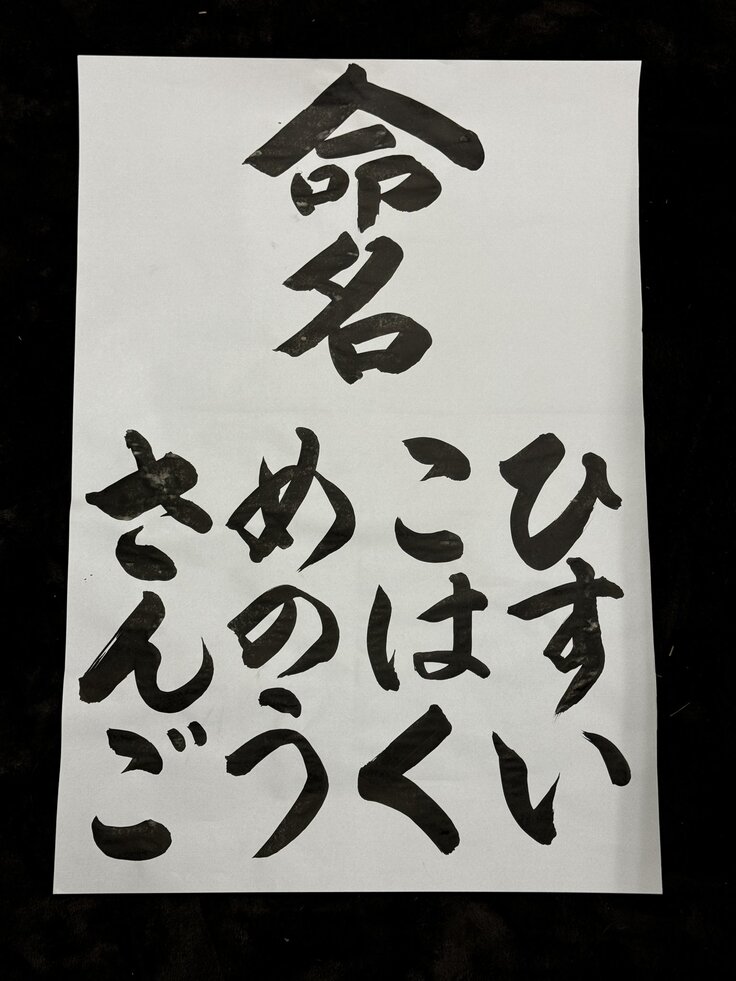 命名
ひすい
こはく
めのう
さんご